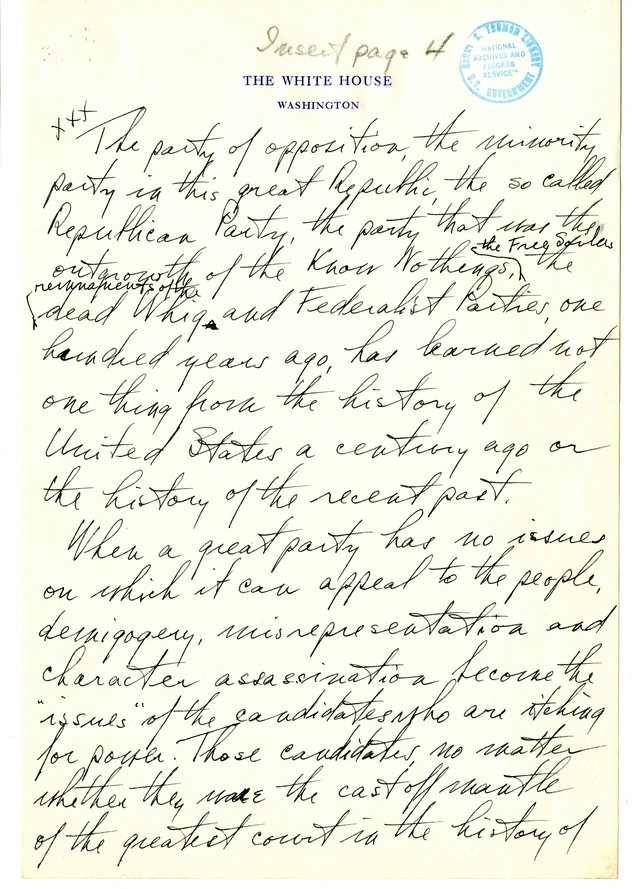 Insert page 4
HARRY S. TRUMAN LIBRARY
"NATIONAL
ARCHIVES AND
RECORDS
SERVICE"
U.S. GOVERNMENT
THE WHITE HOUSE
WASHINGTON
xxx
The party of opposition, the minority
party in this great Republic, the so called
Republican Party, the party that was the
the Free Soilers
outgrowth of the Know Nothings, the
remnaments of the
dead Whig and Federalist Parties, one
hundred years ago, has learned not
one thing from the history of the
United States a century ago or
the history of the recent past.
When a great party has no issues
on which it can appeal to the people,
demigogery, misrepresentation and
character assassination become the
"issues" of the candidates who are itching
for power. Those candidates, no matter
whether they the cast off mantle
of the greatest court in the history of